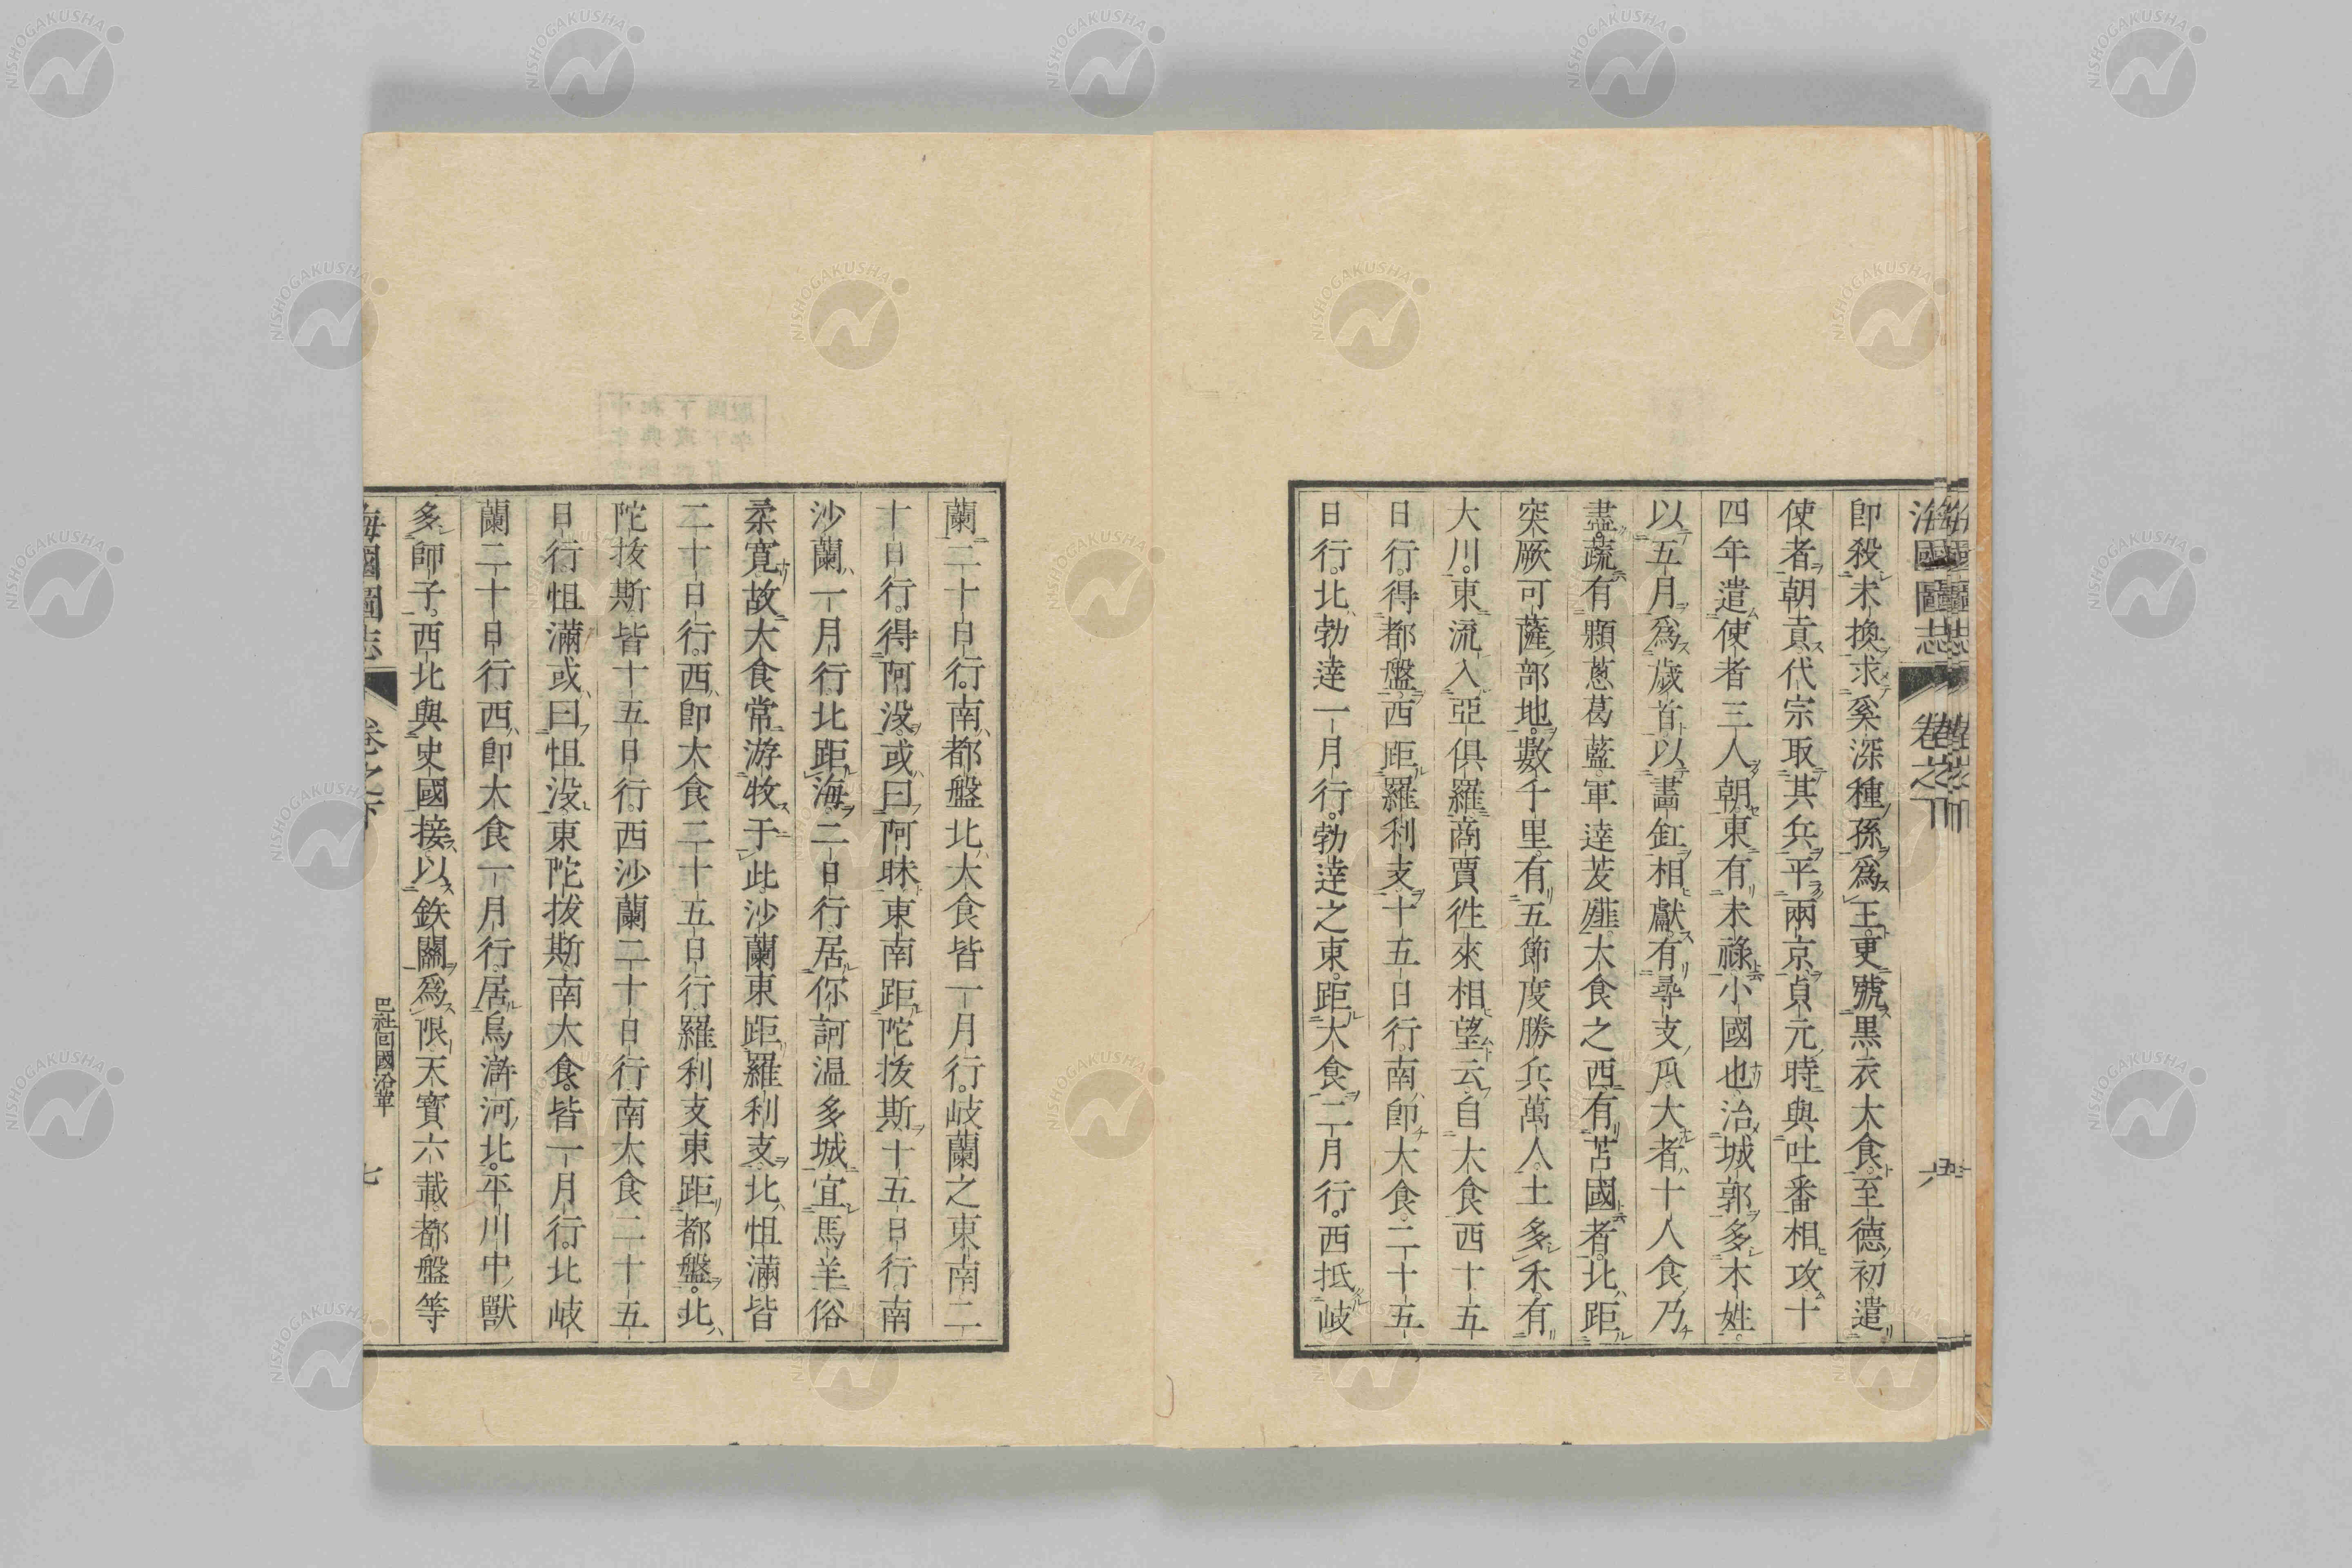 海國圖志
即殺末換求奚深種孫爲王更號黑衣大食至德初遣
使者朝貢代宗取其兵平兩京貞元時與吐番相攻十
四年遣使者三人朝東有末祿小國也治城郭多木姓
以五月爲歲首以畫缸相獻有尋支瓜大者十人食乃
盡蔬有顆蔥葛藍軍達茇薤大食之西有苫國者北距
突厥可薩部地數千里有五節度勝兵萬人土多禾有
大川東流入亞俱羅商賈徃來相望云自大食西十五
日行得都盤西距羅利支十五日行南即大食二十五
日行北勃達一月行勃達之東距大食二月行西抵岐
蘭二十日行南都盤北大食皆一月行岐蘭之東南二
十日行得阿没或曰阿昧東南距陀拔斯十五日行南
沙蘭一月行北距海二日行居你訶温多城宜馬羊俗
柔寬故大食常游牧于此沙蘭東距羅利支北怛滿皆
二十日行西即大食二十五日行羅利支東距都盤北
陀拔斯皆十五日行西沙蘭二十日行南大食二十五
日行怛滿或曰怛没東陀拔斯南大食皆一月行北岐
蘭二十日行西即大食一月行居烏滸河北平川中獸
多師子西北與史國接以鉄關爲限天寳六載都盤等
海國圖志 卷之 巴社回國沿革 七
NISHOGAKUSHA